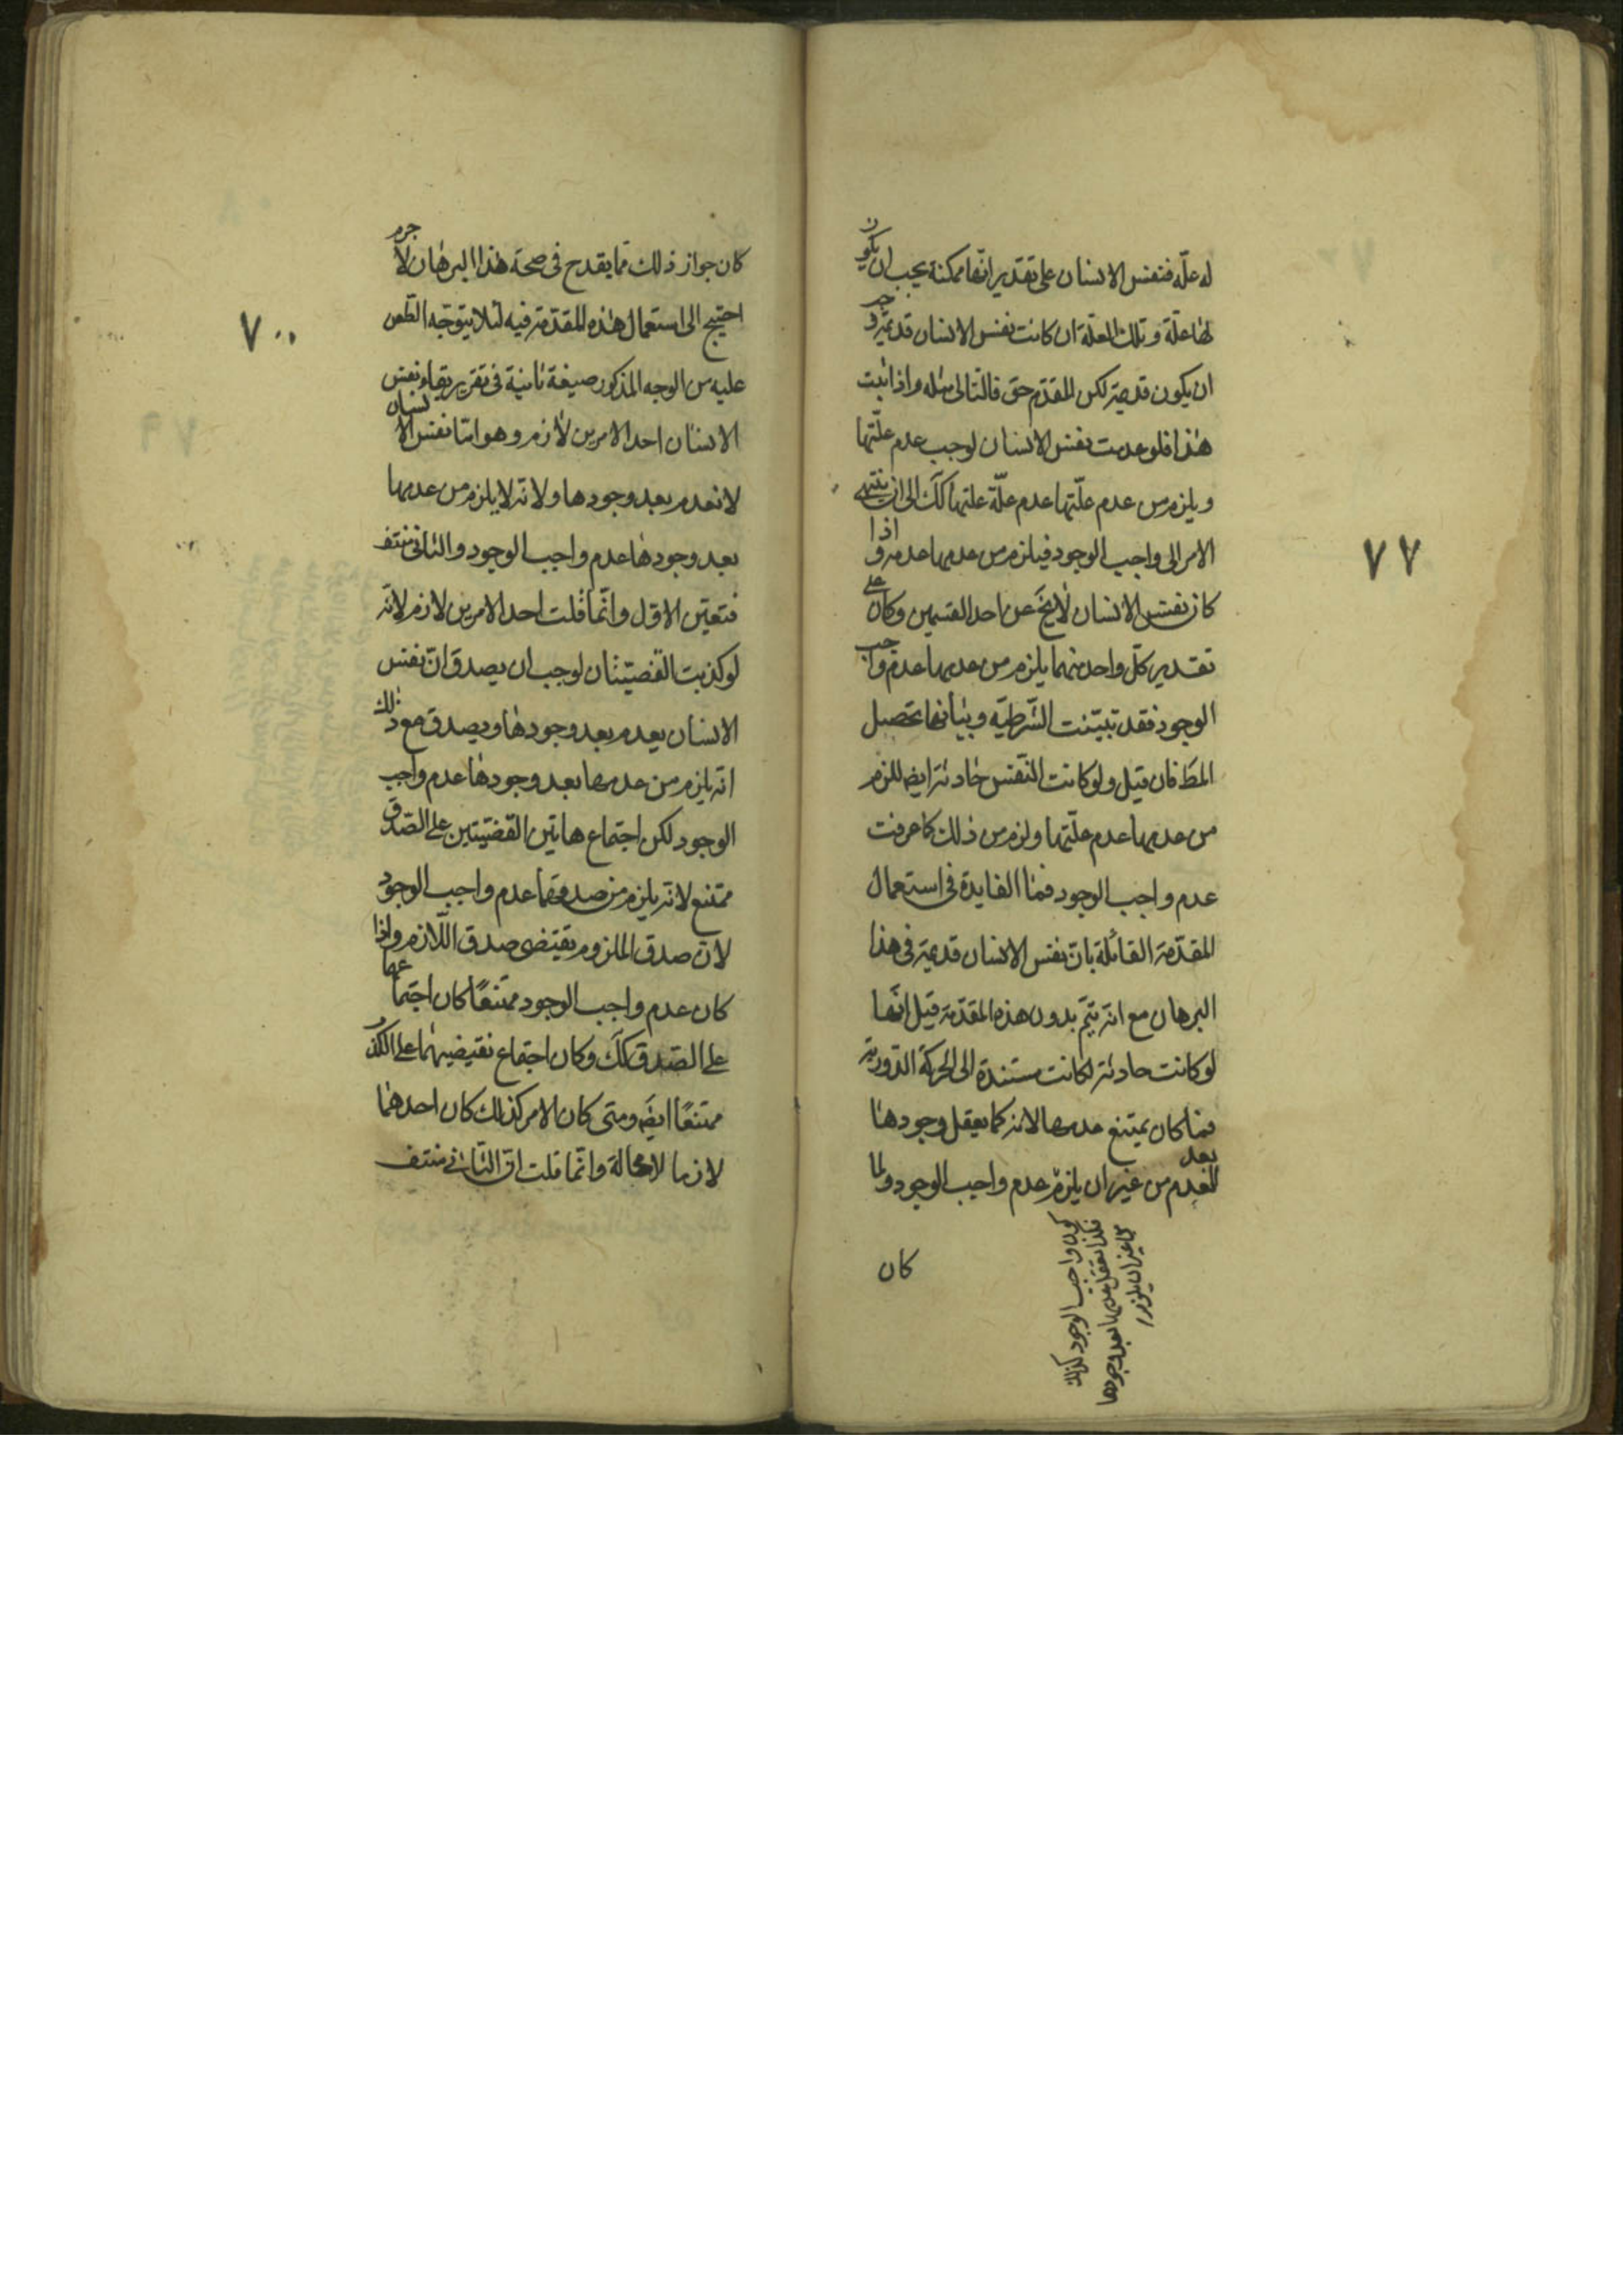 له علّة فنفس الانسان على تقدير انّها ممكنة يجب ان يكون
لها علّة وتلك العلّة ان كانت نفس الانسان قديمة وجب
ان يكون قديمة لكن المقدّم حق فالتالى مثله واذا ثبت
هذا فلو عدمت نفس الانسان لوجب عدم علّتها
ويلزم من عدم علّتها عدم علّة علتها كك الى ان ينتهى
الامر الى واجب الوجود فيلزم من عدمها عدمه واذا
كان نفس الانسان لا يخ عن احد القسمين وكان على
تقدير كلّ واحد منهما يلزم من عدمها عدم واجب
الوجود فقد تبيّنت الشّرطيّه وبيانها تحصيل
المط فان قيل ولو كانت النّفس حادثة ايض للزم
من عدمها عدم علّتها ولزم من ذلك كما عرفت
عدم واجب الوجود فما الفايدة فى استعمال
المقدّمة القائلة بانّ نفس الانسان قديمة فى هذا
البرهان مع انّه يتمّ بدون هذه المقدّمة قيل انّها
لو كانت حادثة لكانت مستندة الى الحركة الدّورية
فما كان يمتنع عدمها لانه كما يعقل وجودها
بعد العدم من غير ان يلزم عدم واجب الوجود ولما
كون واجب الوجود كذلك
فكذا يعقل عدمها بعد وجودها
من غير ان يلزم
كان
٧٧
كان جواز ذلك ممّا يقدح فى صحة هذا البرهان لا جرم
احتيج الى استعمال هذه المقدّمة فيه لئلا يتوجّه الطّعن
عليه من الوجه المذكور صيغة ثانية فى تقرير بقاء نفس
الانسان احد الامرين لازم وهو امّا نفس الانسان
لا تعدم بعد وجودها ولانّه لا يلزم من عدمها
بعد وجودها عدم واجب الوجود والثانى منتف
فتعيّن الاوّل وانّما قلت احد الامرين لازم لانّه
لو كذبت القضيّتان لوجب ان يصدق انّ نفس
الانسان يعدم بعد وجودها ويصدق مع ذلك
انّه يلزم من عدمها بعد وجودها عدم واجب
الوجود لكن اجتماع هاتين القضيّتين على الصّدق
ممتنع لانّه يلزم من صدقهما عدم واجب الوجود
لانّ صدق الملزوم يقتضى صدق اللّازم واذا
كان عدم واجب الوجود ممتنعًا كان اجتماعهما
على الصّدق كك وكان اجتماع نقيضيهما على الكذ
ممتنعًا ايض ومتى كان الامر كذلك كان احدهما
لازما لا محالة وانّما قلت انّ الثّانى منتف
٧٠٠